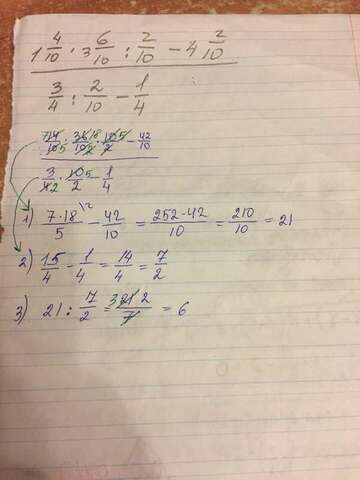 1 4/10 · 3 6/10 : 2/10 - 4 2/10
3/4 : 2/10 - 1/4
14/10 · 36/10 · 10/2 - 42/10
3/4 · 10/2 - 1/4
1) 7·18/5 - 42/10 = 252-42/10 = 210/10 = 21
2) 15/4 - 1/4 = 14/4 = 7/2
3) 21 : 7/2 = 21·2/7 = 6